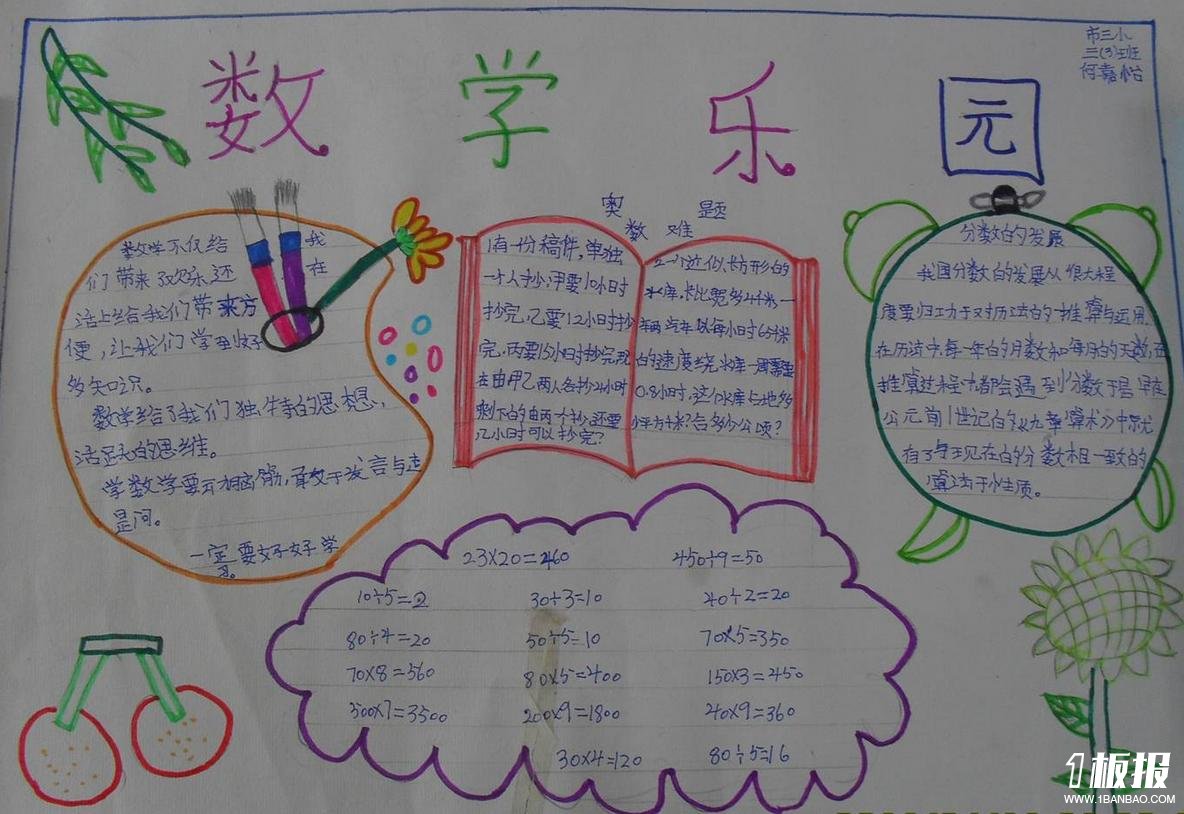 市三小
三(3)班
何嘉怡
数学乐元
数学不仅给我
们带来了欢乐,还在
活上给我们带来方
便,让我们学到好
多知识。
数学给了我们独特的思想,
活跃的思维。
学数学要开脑筋,敢于发言与连
是问。
一定要好好学
习。
奥数难题
1有一份稿件,单独
一个人抄,甲要10小时
抄完,乙要12小时抄
完,丙要15小时抄完,现
在由甲乙两人各抄2小时
剩下的由丙才抄,还要
几小时可以抄完?
2一个近似长方形的
水库,长比宽多4千米,一
车两汽车以每小时65千米
的速度绕水库一周需要
0.8小时,这个水库占地多
少平方千米?合多少公顷?
分数的发展
我国分数的发展从很大程
度要归功于对历法的推算与运用,
在历法中,每一年的月数和每月的天数,在
推算过程中都会遇到分数于是早在
公元前1世记的《九章算术》中就
有了与现在的分数相一致的
算法于性质。
23×20=460 450÷9=50
10÷5=2 30÷3=10 40÷2=20
80÷4=20 50÷5=10 70×5=350
70×8=560 80×5=400 150×3=450
500×7=3500 200×9=1800 40×9=360
30×4=120 80÷5=16
1板报
WWW.1BANBAO.COM